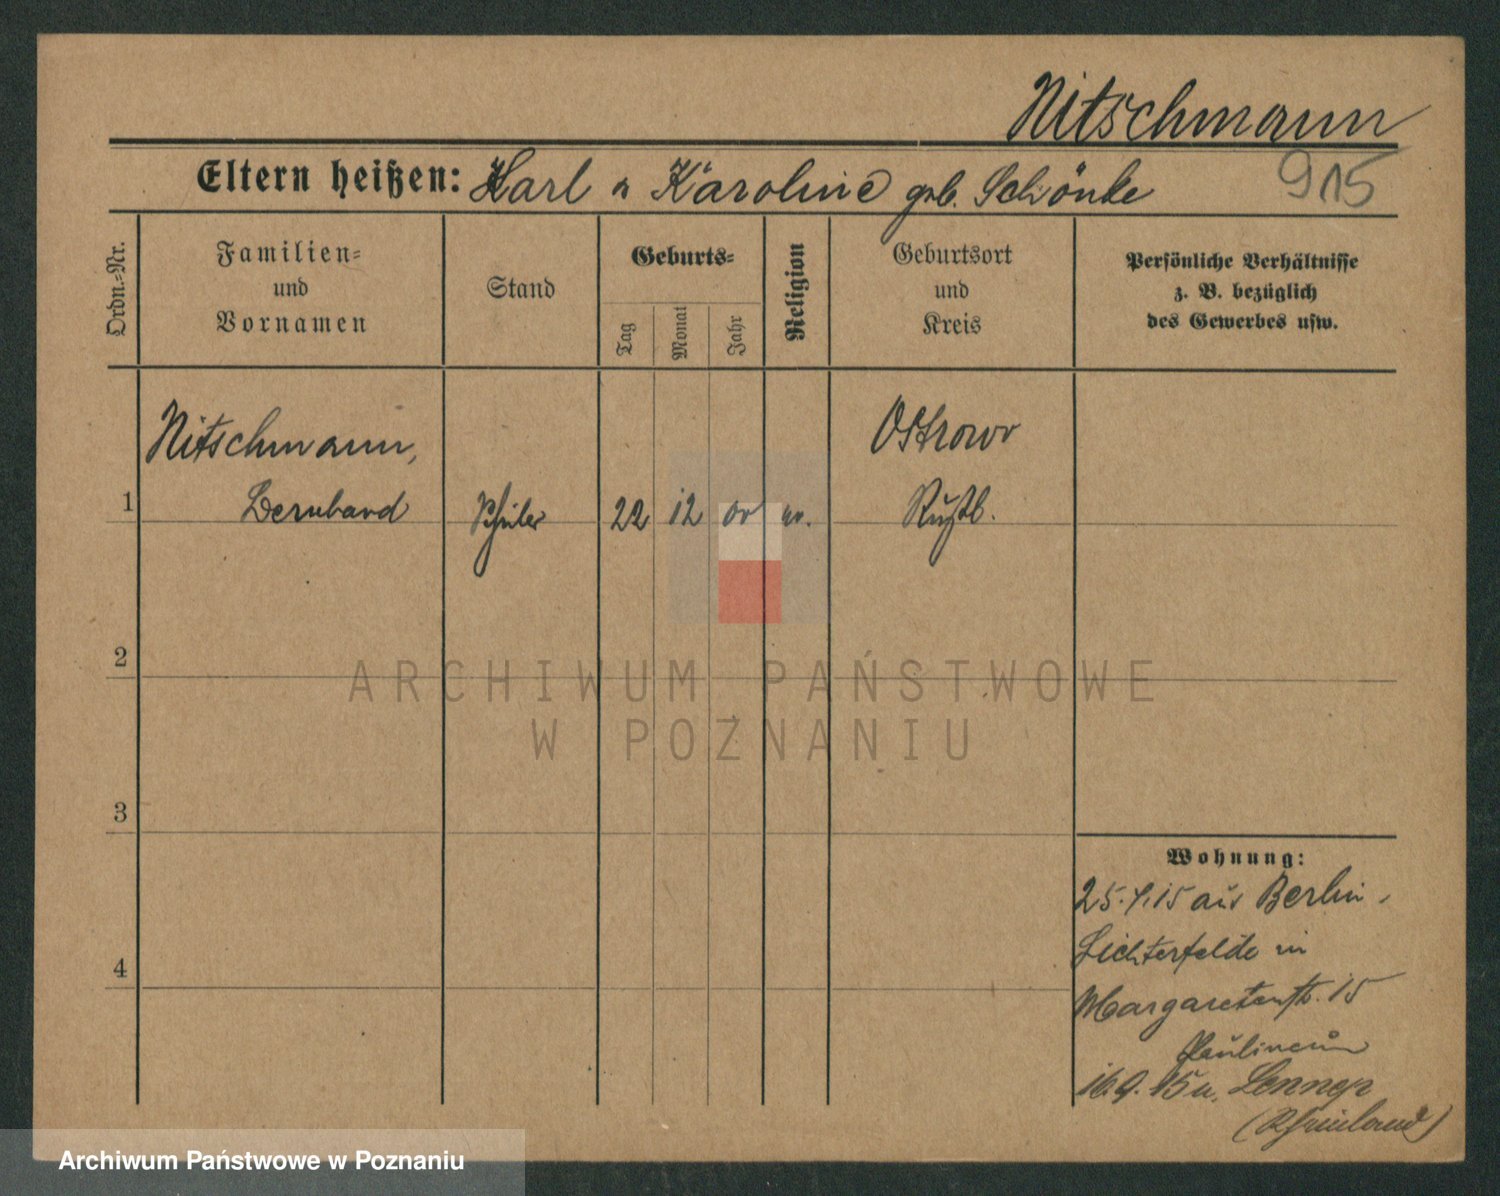 Nitschmann
Eltern heißen: Karl u Karoline geb. Schönke
915
Ordn.=Nr.
Familien=
und
Vornamen
Stand
Geburts=
Tag
Monat
Jahr
Religion
Geburtsort
und
Kreis
Persönliche Verhältnisse
z. B. bezüglich
des Gewerbes usw.
Nitschmann,
Ostrowo
1 Bernhard Schüler 22 12 00 ev. Rußl.
2
ARCHIWUM PAŃSTWOWE
W POZNANIU
3
4
Wohnung:
25. 15 aus Berlin
Lichterfelde in
Margaretenstr. 15
Paulineum
16.9.15 n. Lennep
(Rheinland)
Archiwum Państwowe w Poznaniu